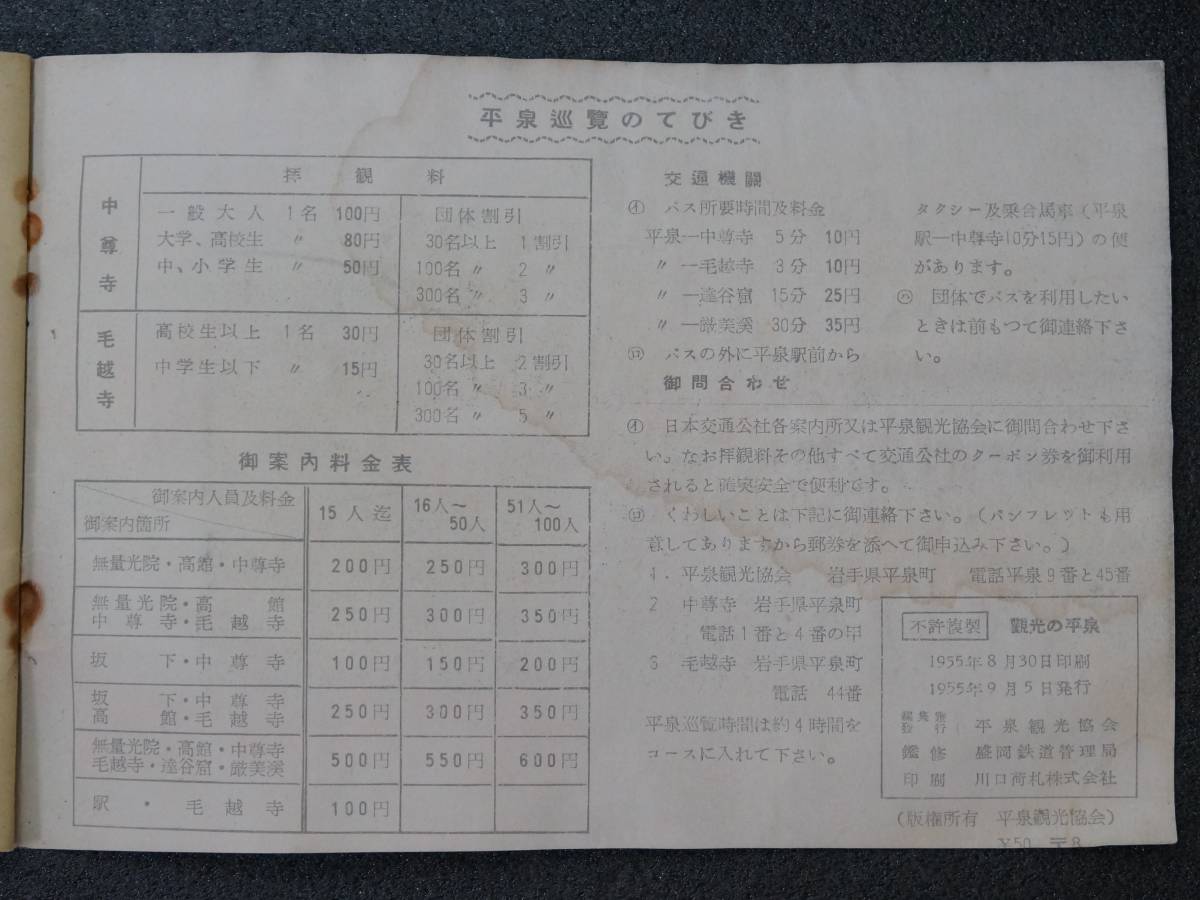 平泉巡覽のてびき
中尊寺
拝観料
一般大人 1名 100円
大学、高校生 〃 80円
中、小学生 〃 50円
団体割引
30名以上 1割引
100名〃 2〃
300名〃 3〃
毛越寺
高校生以上 1名 30円
中学生以下 〃 15円
団体割引
30名以上 2割引
100名〃 3〃
300名〃 5〃
御案内料金表
御案内人員及料金
御案内箇所
15人迄
16人〜50人
51人〜100人
無量光院・高館・中尊寺 200円 250円 300円
無量光院・高館
中尊寺・毛越寺 250円 300円 350円
坂下・中尊寺 100円 150円 200円
坂下・中尊寺
高館・毛越寺 250円 300円 350円
無量光院・高館・中尊寺
毛越寺・達谷窟・厳美溪 500円 550円 600円
駅・毛越寺 100円
交通機關
㋑ バス所要時間及料金
平泉―中尊寺 5分 10円
〃―毛越寺 3分 10円
〃―達谷窟 15分 25円
〃―厳美溪 30分 35円
㋺ バスの外に平泉駅前から
タクシー及乗合馬車(平泉
駅―中尊寺10分15円)の便
があります。
㋩ 団体でバスを利用したい
ときは前もつて御連絡下さ
い。
御問合わせ
㋑ 日本交通公社各案内所又は平泉観光協会に御問合わせ下さ
い。なお拝観料その他すべて交通公社のクーポン券を御利用
されると確実安全で便利です。
㋺ くわしいことは下記に御連絡下さい。(パンフレットも用
意してありますから郵券を添へて御申込み下さい。)
1. 平泉観光協会 岩手県平泉町 電話平泉9番と45番
2 中尊寺 岩手県平泉町
電話1番と4番の甲
3 毛越寺 岩手県平泉町
電話 44番
平泉巡覧時間は約4時間を
コースに入れて下さい。
不許複製 觀光の平泉
1955年8月30日印刷
1955年9月5日発行
編集兼
発行 平泉観光協会
鑑修 盛岡鉄道管理局
印刷 川口荷札株式会社
(版権所有 平泉觀光協会)
¥50 〒8